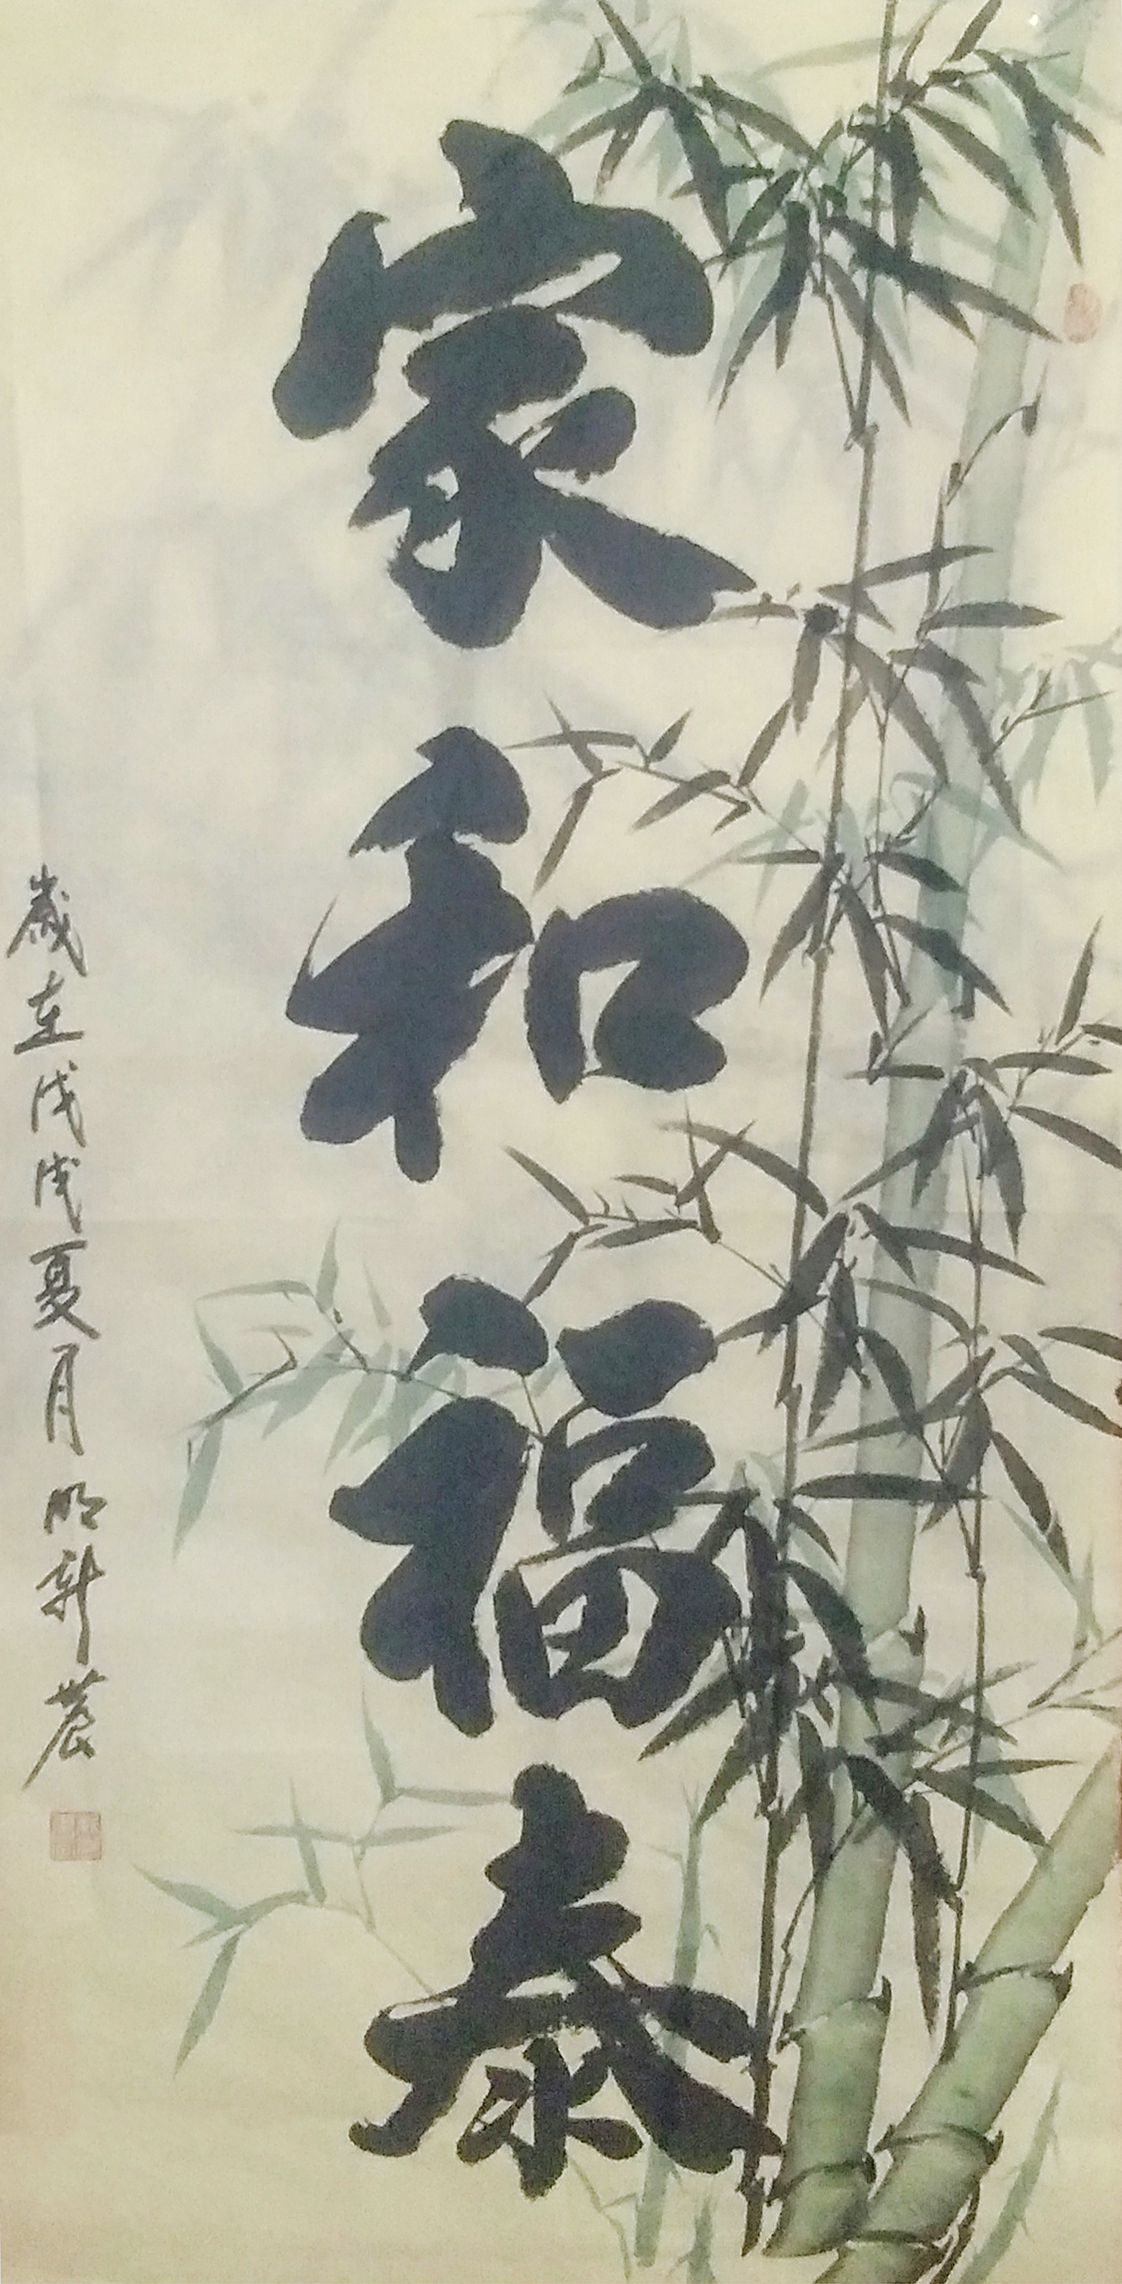 家和福泰
歲在戊戌夏月明軒農